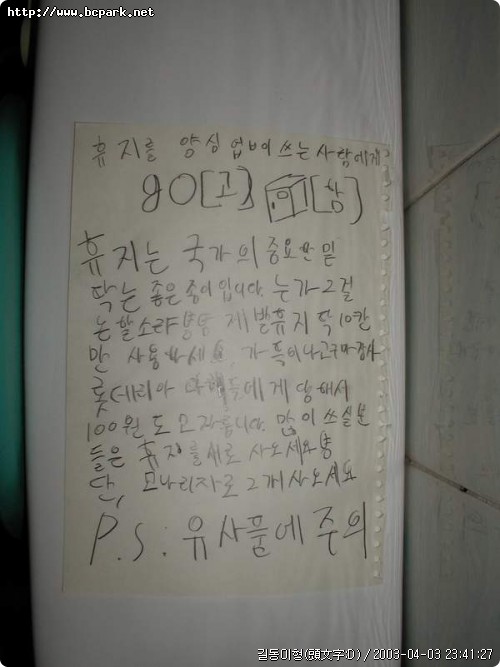 http://www.bcpark.net
휴지를 양심 업ㅂ이 쓰는사람에게
go[고] [함]
휴지는 국가의 중요한 밑
닦는 좋은종이입니다. 눈가그걸
논할소냐 제발휴지 딱10칸
만 사용하세요,
롯데리아 에게 당해서
100원도 모자릅니다. 많이 쓰실분
들은 휴지를새로 사오세요
단, 모나리자로 2개사오세요
P.S: 유사품에 주의
길동이형(頭文字D) / 2003-04-03 23:41:27